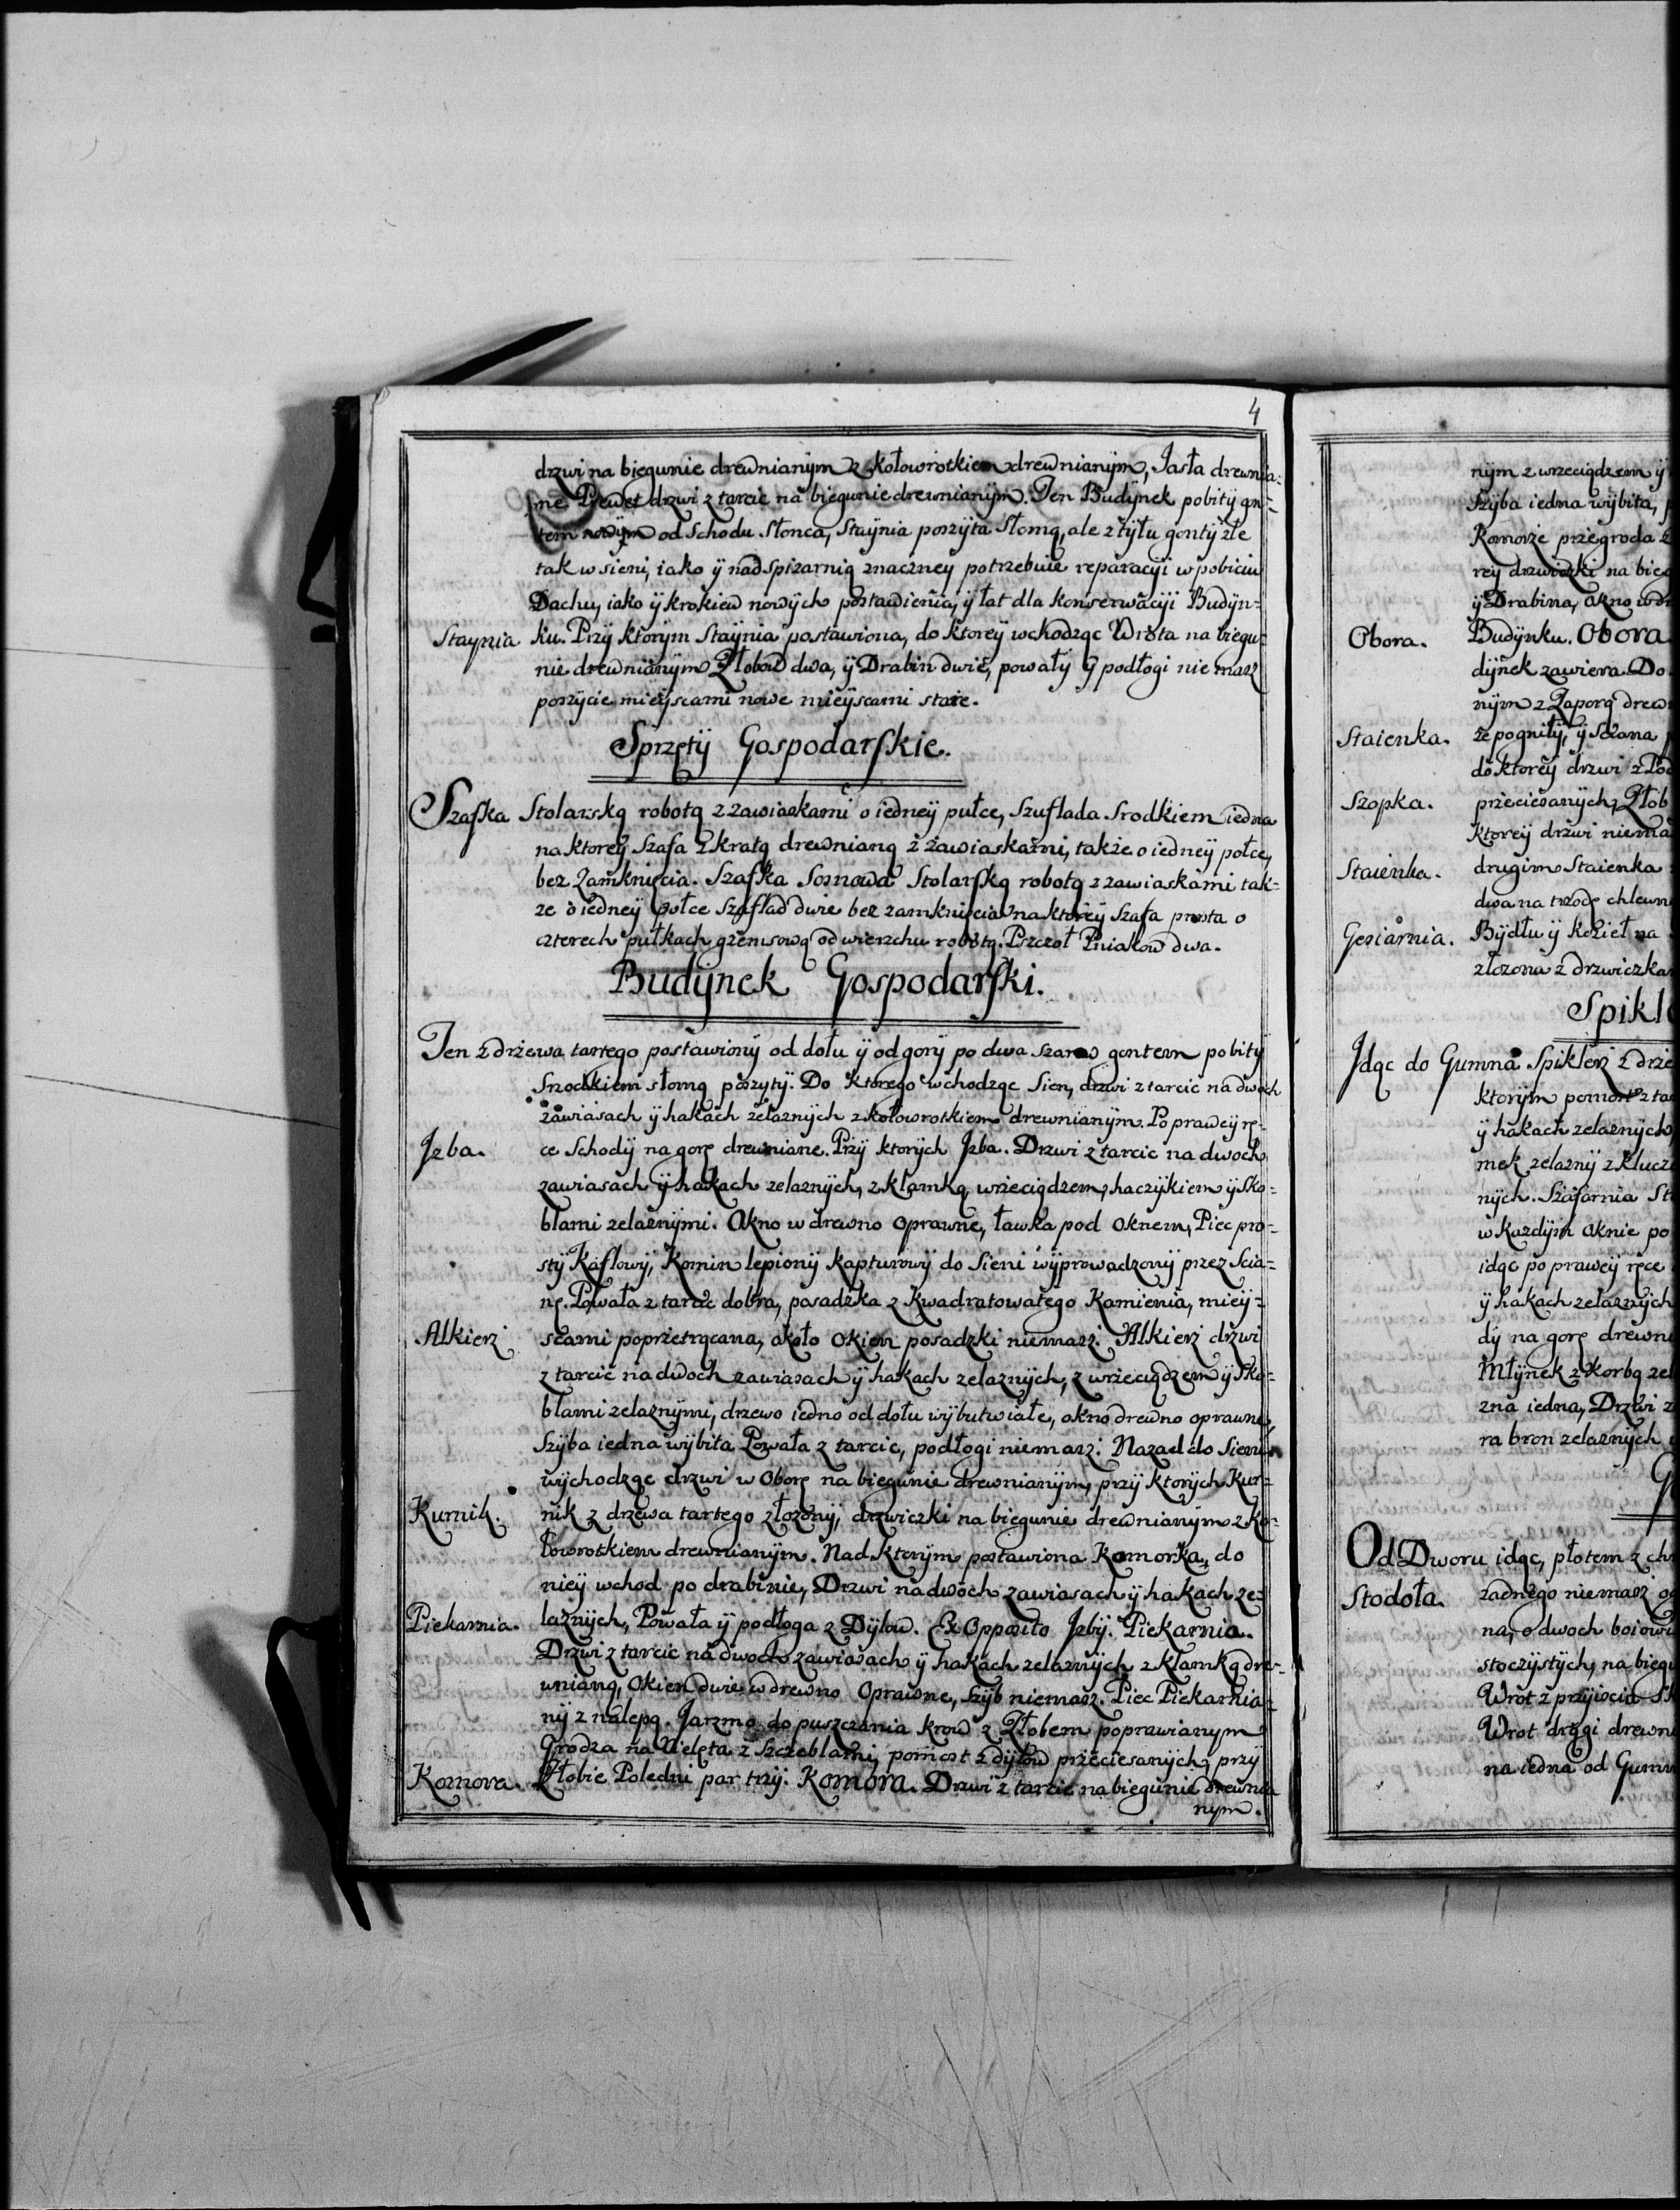 4
drzwi na biegunie drewnianÿm z kołowrotkiem drewnianÿm, Jasła drewnia=
ne Prewet drzwi z tarcic na biegunie drewnianÿm. Ten Budÿnek pobitÿ gn=
tem nowÿm od Schodu Słonca, Staÿnia poszÿta Słomą, ale z tÿłu gontÿ złe
tak w sieni, iako ÿ nad spizarnią znaczneÿ potrzebuie reparacÿi w pobiciu
Dachu, iako ÿ krokiew nowÿch postawienia, ÿ łat dla konserwacÿi Budÿn=
Staÿnia ku. Przÿ ktorÿm Staÿnia postawiona, do ktoreÿ wchodząc Wrota na biegu=
nie drewnianÿm Złobow dwa, ÿ Drabin dwie, powałÿ ÿ podłogi nie masz
poszÿcie mieÿscami nowe mieÿscami stare.
Sprzętÿ Gospodarskie.
Szafka Stolarską robotą z zawiaskami o iedneÿ pułce, Szuflada Srodkiem iedna
na ktoreÿ Szafa z kratą drewnianą z zawiaskami, także o iedneÿ połce,
bez Zamknięcia. Szafka Sosnowa Stolarską robotą z zawiaskami tak=
ze o iedneÿ połce Szaflad dwie bez zamknięcia na ktoreÿ Szafa prosta o
czterech pułkach gzemsową od wierzchu robotą. Pszczoł Pniakow dwa.
Budÿnek Gospodarski.
Ten z drzewa tartego postawionÿ od dołu ÿ od gorÿ po dwa Szarÿ gontem pobitÿ
Srzodkiem słomą poszytÿ. Do ktorego wchodząc Sien, drzwi z tarcic na dwoch
zawiasach ÿ hakach żelaznÿch z kołowrotkiem drewnianÿm. Po praweÿ rę=
Jzba. ce Schodÿ na gorę drewniane. Przÿ ktorÿch Jzba. Drzwi z tarcic na dwoch
zawiasach ÿ hakach zelaznÿch, z kłamką, wrzeciądzem, haczÿkiem ÿ Sko=
blami zelaznÿmi. Okno w drewno oprawne, ławka pod oknem, Piec pro=
stÿ Kaflowÿ, Komin lepionÿ kapturowÿ do Sieni wÿprowadzonÿ przez Scia=
nę. Powała z tarcic dobra, posadzka z Kwadratowatego Kamienia, mieÿ=
Alkierz scami poprzetrącana, około okien posadzki niemasz. Alkierz drzwi
z tarcic na dwoch zawiasach ÿ hakach zelaznÿch, z wrzeciądzem ÿ Sko=
blami zelaznÿmi, drzewo iedno od dołu wÿbutwiałe, okno drewno oprawne,
Szÿba iedna wÿbita Powała z tarcic, podłogi niemasz. Nazad do Sieni
wÿchodząc drzwi w oborę na biegunie drewnianÿm, przÿ ktorÿch Kur=
Kurnik. nik z drzewa tartego złożonÿ, drzwiczki na biegunie drewnianÿm z Ko=
łowrotkiem drewnianÿm. Nad ktorÿm postawiona Komorka, do
nieÿ wchod po drabinie, Drzwi na dwoch zawiasach ÿ hakach ze=
Piekarnia. laznÿch, Powała ÿ podłoga z Dÿlow. Ex Opposito Jzbÿ. Piekarnia.
Drzwi z tarcic na dwoch zawiasach ÿ hakach zelaznÿch z kłamką dre=
wnianą, Okien dwie w drewno oprawne, szÿb niemasz. Piec Piekarnia=
nÿ z nalepą. Jarzmo do puszczania krow z Złobem poprawianÿm
Grodza na Cielęta z Szczeblami, pomost z dÿlow przeciesanÿch, przÿ
Komora. Złobie Poledni par trzÿ. Komora. Drzwi z tarcic na biegunie drewnia
nÿm.
nÿm z wrzeciądzem ÿ
Szÿba iedna wÿbita,
Komorze przegroda z
reÿ drzwiczki na bieg
ÿ Drabina, okno w dr
Obora. Budÿnku. Obora
dÿnek zawiera. Do
nÿm z Zaporą drew
Staienka. ze pogniłÿ, ÿ Sciana
do ktoreÿ drzwi z Pod
Szopka. przeciesanÿch, Złob
ktoreÿ drzwi niema
Staienka. drugim Staienka
dwa na trzodę chlewn
Gesiarnia. Bÿdłu ÿ kozieł na
złozona z drzwiczka
Spikl
Jdąc do Gumna Spiklerz z drze
ktorÿm pomost z ta
ÿ hakach zelaznÿch
mek zelaznÿ z klucz
nÿch. Szafarnia St
w kazdÿm oknie po
idąc po praweÿ ręce
ÿ hakach zelaznÿch
dÿ na gorę drewn
Młÿnek z Korbą zel
zna iedna, Drzwi z
ra bron zelaznÿch
G
Od Dworu idąc, płotem z ch
Stodoła. zadnego niemasz
na, o dwoch boiowi
stoczÿstÿch, na biegu
Wrot z przÿiscia
Wrot drągi drewn
na iedna od Gumn